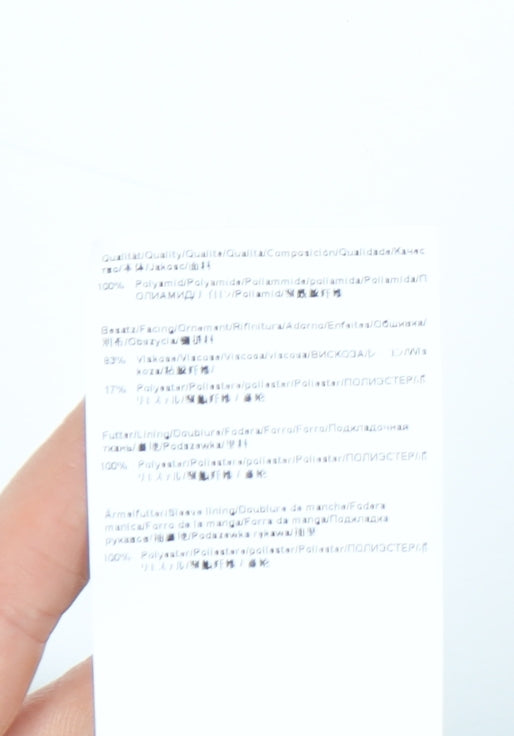 Qualität/Quality/Qualite/Qualità/Composición/Qualidade/Качес
тво/本体/Jakosc/面料
100% Polyamid/Polyamide/Poliammide/poliamida/Poliamida/П
ОЛИАМИД/ナイロン/Poliamid/聚酰胺纤维
Besatz/Facing/Ornement/Rifinitura/Adorno/Enfeites/Обшивка/
別布/Obszycia/镶拼料
83% Viskose/Viscose/Viscosa/viscosa/ВИСКОЗА/レーヨン/Wis
koza/粘胶纤维/
17% Polyester/Poliestere/poliester/Poliester/ПОЛИЭСТЕР/ポ
リエステル/聚酯纤维
Futter/Lining/Doublure/Fodera/Forro/Forro/Подкладочная
ткань/裏地/Podszewka/里料
100% Polyester/Poliestere/poliester/Poliester/ПОЛИЭСТЕР/ポ
リエステル/聚酯纤维
Ärmelfutter/Sleeve lining/Doublure de manche/Fodera
manica/Forro de la manga/Forra da manga/Подкладка
рукавов/袖裏地/Podszewka rekawa/袖里
100% Polyester/Poliestere/poliester/Poliester/ПОЛИЭСТЕР/ポ
リエステル/聚酯纤维